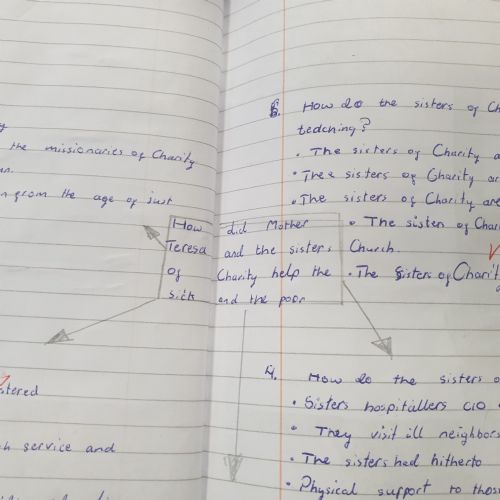 the missionaries of Charity
from the age of just
stered
service and
How did Mother
Teresa and the sisters
of Charity help the
sick and the poor
How do the sisters of Ch
teaching?
• The sisters of Charity a
• Tree sisters of Charity ar
• The sisters of Charity are
• The sisten of Chari
Church.
• The Sisters of Charit
4. How do the sisters o
• Sisters hospitallers
• They visit ill neighbors
• The sisters had hitherto
• Physical support to those